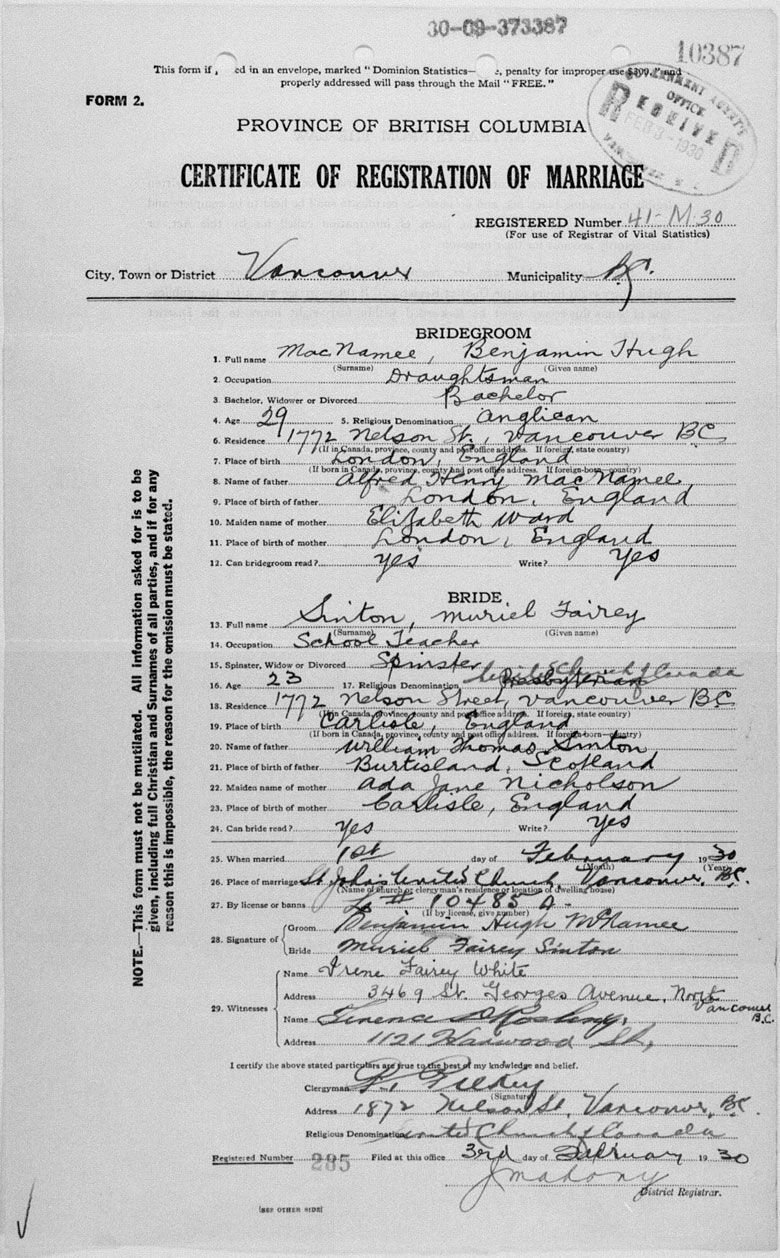 30-09-373387
10387
This form if , ed in an envelope, marked "Dominion Statistics— e, penalty for improper use $300," and
properly addressed will pass through the Mail "FREE."
FORM 2.
GOVERNMENT AGENT'S
OFFICE
RECEIVED
FEB 3 - 1930
PROVINCE OF BRITISH COLUMBIA
CERTIFICATE OF REGISTRATION OF MARRIAGE
REGISTERED Number 41-M-30
(For use of Registrar of Vital Statistics)
City, Town or District Vancouver Municipality B.C.
BRIDEGROOM
1. Full name MacNamee, Benjamin Hugh
(Surname) (Given name)
2. Occupation Draughtsman
3. Bachelor, Widower or Divorced Bachelor
4. Age 29 5. Religious Denomination Anglican
6. Residence 1772 Nelson St., Vancouver BC
(If in Canada, province, county and post office address. If foreign, state country)
7. Place of birth London, England
(If born in Canada, province, county and post office address. If foreign-born, country)
8. Name of father Alfred Henry MacNamee,
9. Place of birth of father London, England
10. Maiden name of mother Elizabeth Ward
11. Place of birth of mother London, England
12. Can bridegroom read? yes Write? Yes
BRIDE
13. Full name Sinton, Muriel Fairey
(Surname) (Given name)
14. Occupation School Teacher
15. Spinster, Widow or Divorced Spinster
16. Age 23 17. Religious Denomination Presbyterian United Church of Canada
18. Residence 1772 Nelson Street, Vancouver BC
(If in Canada, province, county and post office address. If foreign, state country)
19. Place of birth Carlisle, England
(If born in Canada, province, county and post office address. If foreign-born, country)
20. Name of father William Thomas Sinton,
21. Place of birth of father Burtisland, Scotland
22. Maiden name of mother Ada Jane Nicholson
23. Place of birth of mother Carlisle, England
24. Can bride read? yes Write? yes
25. When married 1st day of February 1930
(Month) (Year)
26. Place of marriage St. John's United Church, Vancouver, B.C.
(Name of church or clergyman's residence or location of dwelling house)
27. By license or banns L # 10485 A.
(If by license, give number)
28. Signature of Groom Benjamin Hugh McNamee
Bride Muriel Fairey Sinton
29. Witnesses Name Irene Fairey White
Address 3469 St. Georges Avenue, North Vancouver B.C.
Name
Address 1121 Harwood St,
I certify the above stated particulars are true to the best of my knowledge and belief.
Clergyman
(Signature)
Address 1872 Nelson St, Vancouver, B.C.
Religious Denomination United Church of Canada
Registered Number 285 Filed at this office 3rd day of February 1930
J Mahony
District Registrar.
[SEE OTHER SIDE]
NOTE.—This form must not be mutilated. All information asked for is to be
given, including full Christian and Surnames of all parties, and if for any
reason this is impossible, the reason for the omission must be stated.